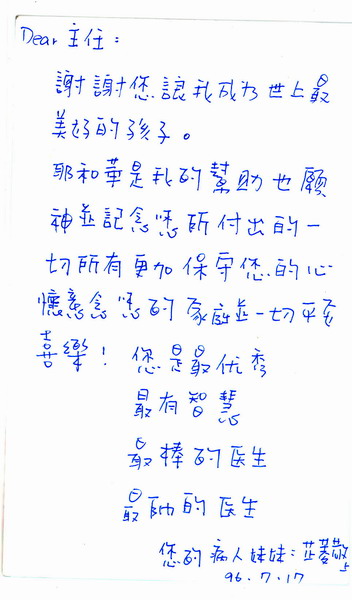 Dear 主任：
謝謝您讓我成為世上最
美好的孩子。
耶和華是我的幫助也願
神並記念您所付出的一
切所有更加保守您的心
懷意念您的家庭並一切平安
喜樂！ 您是最优秀
最有智慧
最棒的医生
最帥的医生
您的病人妹妹：芷菱敬上
96.7.17